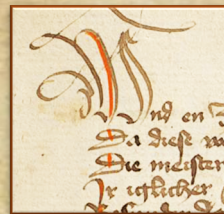 Vnd en
Da diese
Die meister
Jr iglicher